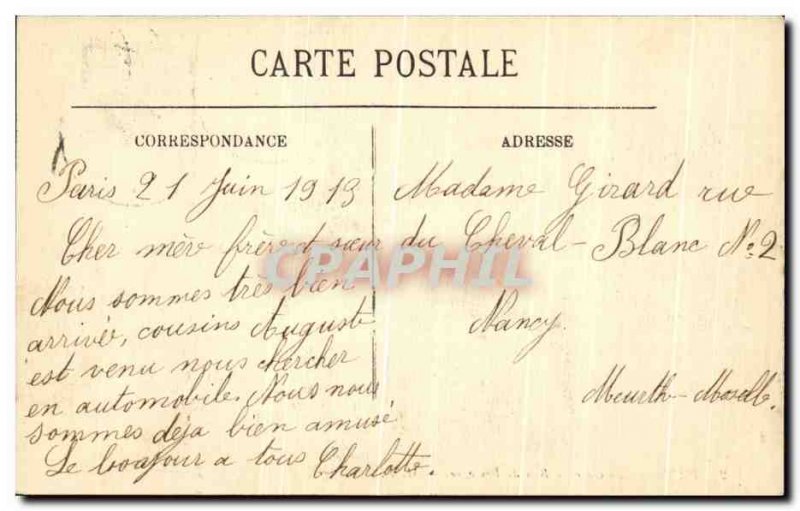 CARTE POSTALE
CORRESPONDANCE
Paris 21 Juin 1913
Cher mère frère et sœur
Nous sommes très bien
arrivée, cousins Auguste
est venu nous chercher
en automobile. Nous nous
sommes déja bien amusé
Le bonjour a tous Charlotte.
ADRESSE
Madame Girard rue
du Cheval-Blanc No 2
Nancy.
Meurth-Mosell.
CPAPHIL